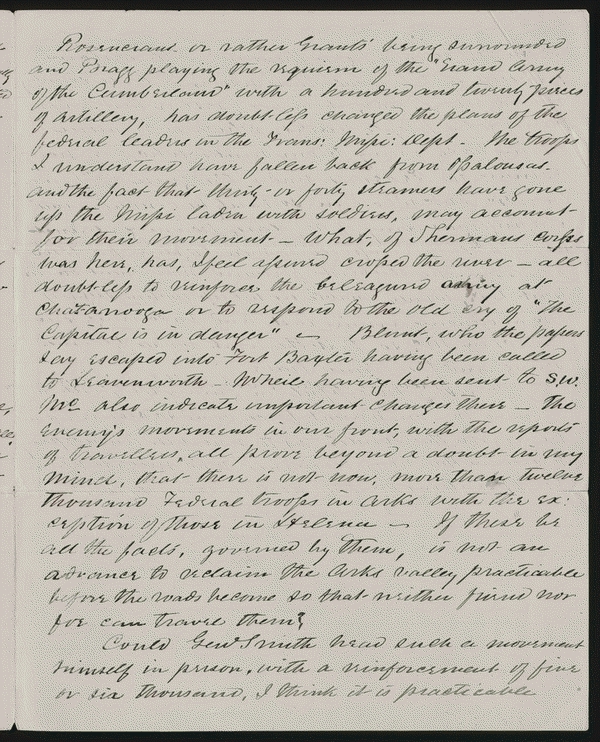 Rosencrans or rather Grants' being surrounded
and Bragg playing the requiem of the "Grand Army
of the Cumberland" with a hundred and twenty pieces
of artillery, has doubtless changed the plans of the
federal leaders in the Trans: Missi: Dept. The troops
I understand have fallen back from Opalousas.
and the fact that thirty or forty steamers have gone
up the Missi laden with soldiers, may account
for their movement – What, of Shermans corps
was here, has, I feel assured crossed the river – all
doubtless to reinforce the beleagured army at
Chatanooga or to respond to the old cry of "The
Capital is in danger" – Blunt, who the papers
say escaped into Fort Baxter having been called
to Leavenworth – McNeil having been sent to S.W.
Mo. also, indicate important changes there – The
enemy's movements in our front, with the reports
of travellers, all prove beyond a doubt in my
mind, that there is not now, more than twelve
thousand Federal troops in Arks with the ex:
ception of those in Helena – If these be
all the facts, governed by them, is not an
advance to reclaim the Arks valley, practicable
before the roads become so that neither friend nor
foe can travel them?
Could Genl Smith head such a movement
himself in person, with a reinforcement of five
or six thousand, I think it is practicable